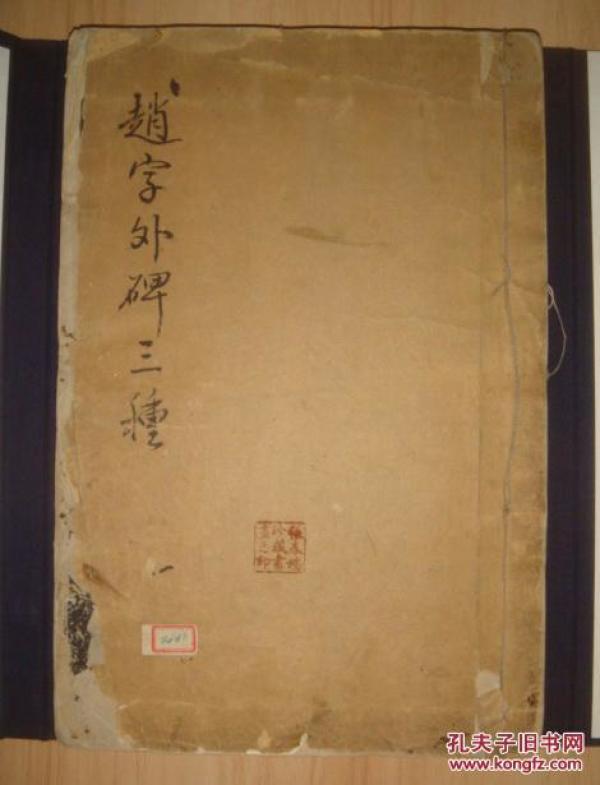 趙字外碑三種
孔夫子旧书网
www.kongfz.com